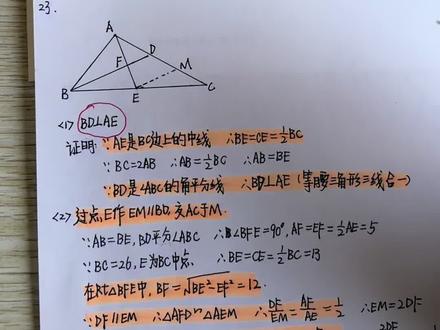 23.
A
D
F
M
B
E
C
<1> BD⊥AE
证明: ∵AE是BC边上的中线 ∴BE=CE=½BC
∵BC=2AB ∴AB=½BC ∴AB=BE
∵BD是∠ABC的角平分线 ∴BD⊥AE (等腰三角形三线合一)
<2> 过点E作EM∥BD, 交AC于M.
∵AB=BE, BD平分∠ABC ∴∠BFE=90°, AF=EF=½AE=5
∵BC=26, E为BC中点. ∴BE=CE=½BC=13
在Rt△BFE中, BF=√BE²-EF²=12.
∵DF∥EM ∴△AFD∽△AEM ∴DF/EM=AF/AE=1/2 ∴EM=2DF
2DF